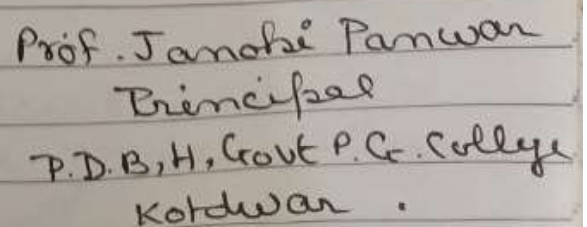 Prof. Janaki Panwar
Principal
P.D.B,H, Govt P.G. College
Kotdwar .